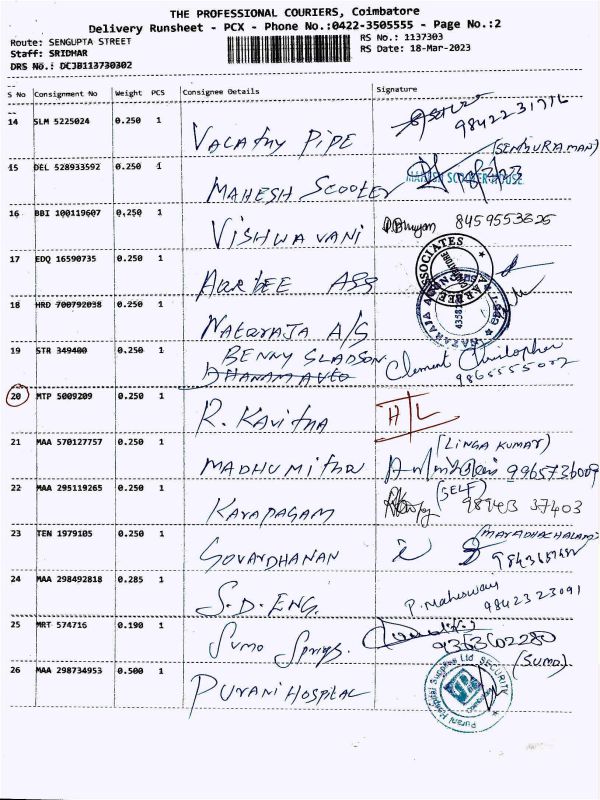 THE PROFESSIONAL COURIERS, Coimbatore
Delivery Runsheet - PCX - Phone No.:0422-3505555 - Page No.:2
Route: SENGUPTA STREET RS No.: 1137303
Staff: SRIDHAR RS Date: 18-Mar-2023
DRS No.: DCJB113730302
S No Consignment No Weight PCS Consignee Details Signature
14 SLM 5225024 0.250 1 VALATHY PIPE
15 DEL 528933592 0.250 1 MAHESH SCOOTER (SENDURAMAN)
16 BBI 100119607 0.250 1 VISHWAVANI
17 EDQ 16590735 0.250 1 ASS
18 HRD 700792038 0.250 1 NATARAJA A/S
19 STR 349400 0.250 1 BENNY GLADSON Clement Christopher
DHANAM AUTO
20 MTP 5009209 0.250 1 R. KAVITHA H/L
21 MAA 570127757 0.250 1 MADHUMITHA (LINGA KUMAR) 9965736009
22 MAA 295119265 0.250 1 KARPAGAM (SELF) 98943 37403
23 TEN 1979105 0.250 1 GOVARDHANAN
24 MAA 298492818 0.285 1 S.D. ENG. P. Maheswari 9842323091
25 MRT 574716 0.190 1 SUMO Springs 9363602280
(SUMO)
26 MAA 298734953 0.500 1 PURANI HOSPITAL
Purani Hospital Supplies Ltd SECURITY